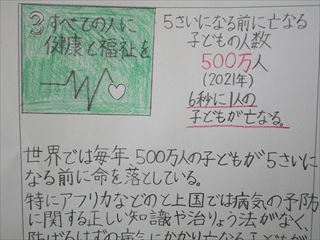 3 すべての人に
健康と福祉を
5さいになる前に亡なる
子どもの人数
500万人
(2021年)
6秒に1人の
子どもが亡なる。
世界では毎年、500万人の子どもが5さいに
なる前に命を落としている。
特にアフリカなどのと上国では病気の予防
に関する正しい知識や治りょう法がなく、